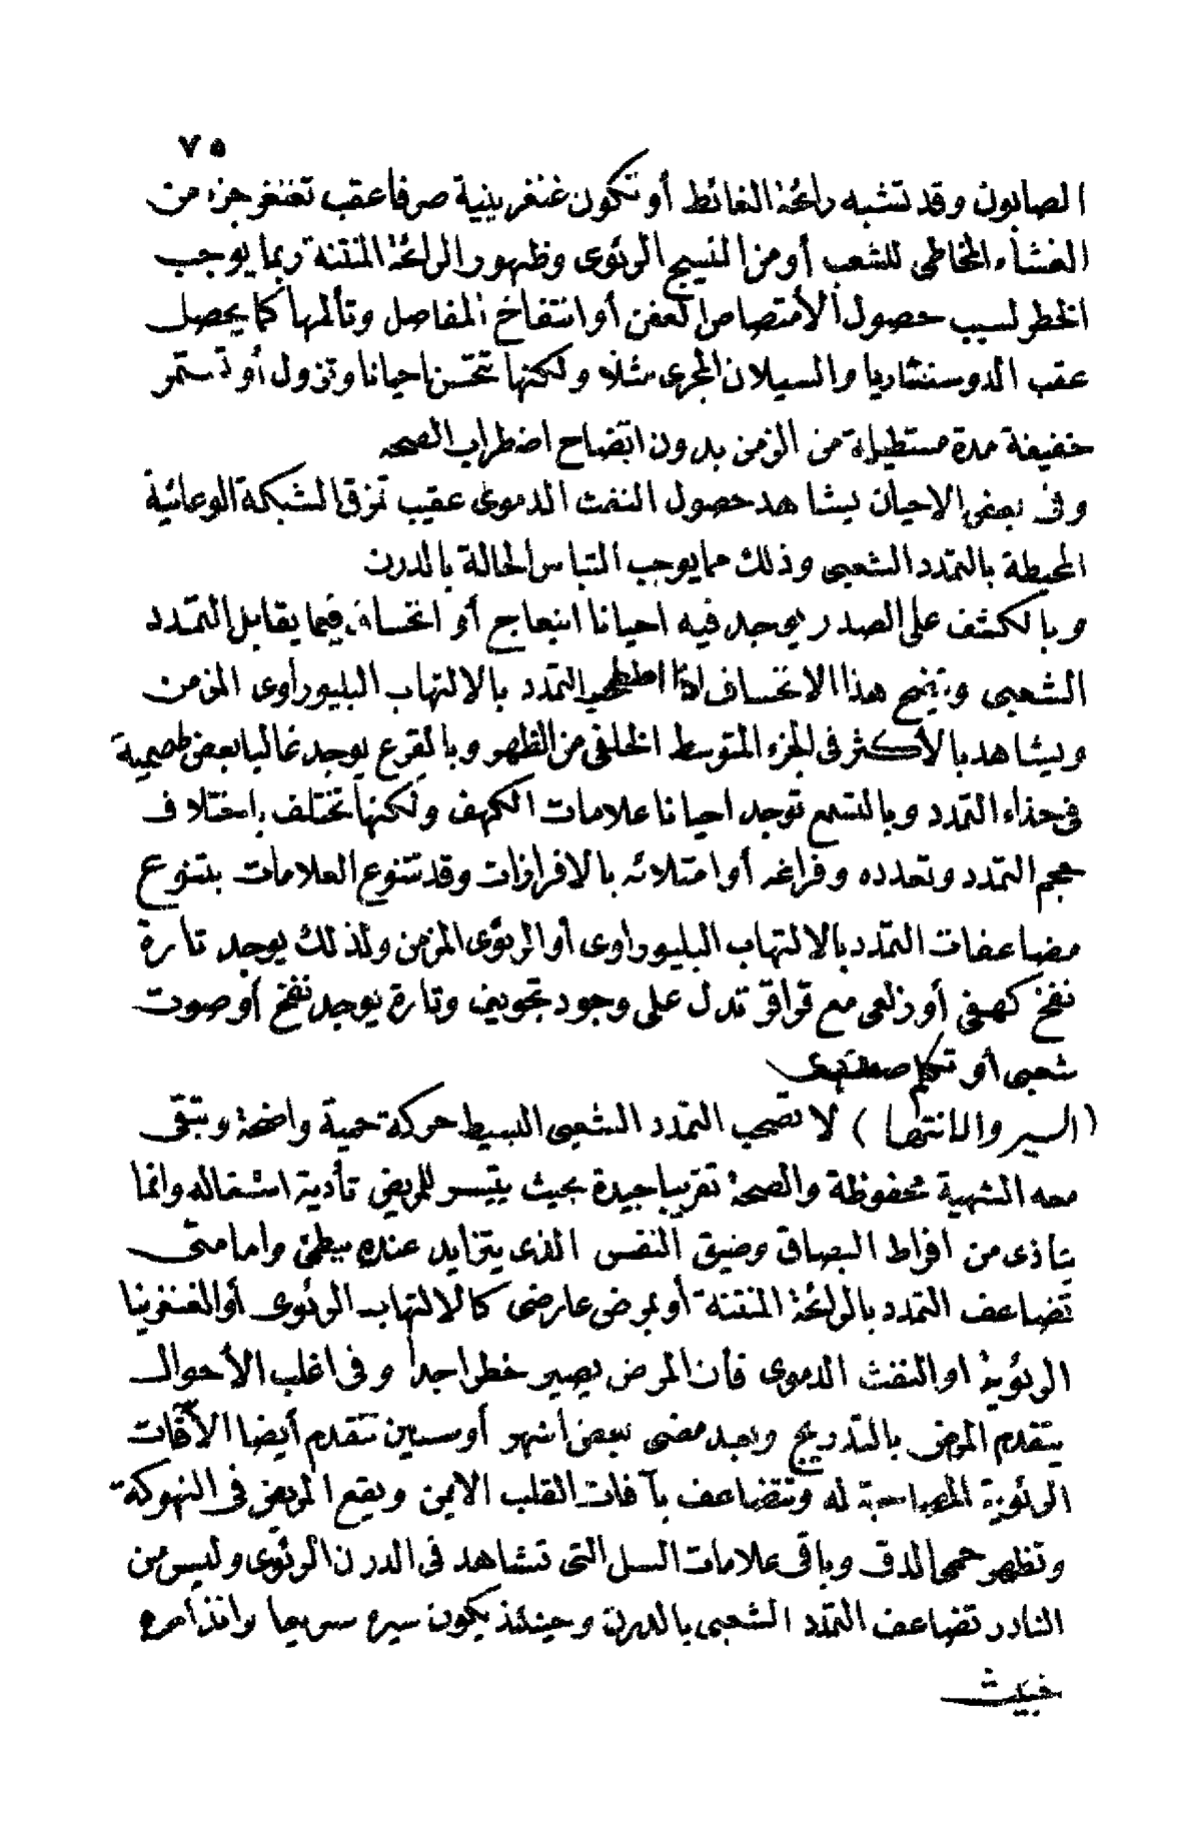 ٧٥
الصابون وقد تشبه رائحة الغائط أو تكون غنغرينية صرفا عقب تغنغر جزء من
الغشاء المخاطى للشعب أو من النسيج الرئوى وظهور الرائحة المنتنة ربما يوجب
الخطر لسبب حصول الأمتصاص العفن أو انتفاخ المفاصل وتألمها كما يحصل
عقب الدوسنتاريا والسيلان المجرى مثلا ولكنها تتحسن احيانا وتزول أو تستمر
خفيفة مدة مستطيلة من الزمن بدون اتضاح اضطراب الصحه
وفى بعض الاحيان يشاهد حصول النفث الدموى عقيب تمزق الشبكة الوعائية
المحيطة بالتمدد الشعبى وذلك مما يوجب التباس الحالة بالدرن
وبالكشف على الصدر يوجد فيه احيانا انبعاج أو انخساف فيما يقابل التمدد
الشعبى ويتضح هذا الانخساف اذا التمدد بالالتهاب البليوراوى المزمن
ويشاهد بالأكثر فى الجزء المتوسط الخلفى من الظهر وبالقرع يوجد غالبا بعض اصمية
فى حذاء التمدد وبالتسمع توجد احيانا علامات الكهف ولكنها تختلف باختلاف
حجم التمدد وتعدده وفراغه أو امتلائه بالافرازات وقد تتنوع العلامات بتنوع
مضاعفات التمدد بالالتهاب البليوراوى أو الرئوى المزمن ولذلك يوجد تارة
نفخ كهفى أو زلعى مع قراقر تدل على وجود تجويف وتارة يوجد نفخ أو صوت
شعبى أو تكلم
(السير والانتها) لا تصحب التمدد الشعبى البسيط حركة حمية واضحة وتبقى
معه الشهية محفوظة والصحة تقريبا جيدة بحيث يتيسر للمريض تأدية اشغاله وانما
يتاذى من افراط البصاق وضيق النفس الذى يتزايد عنده ببطئ واما متى
تضاعف التمدد بالرائحة المنتنة أو بمرض عارضى كالالتهاب الرئوى أو الغنغرينا
الرئوية او النفث الدموى فان المرض يصير خطرا جدا وفى اغلب الأحوال
يتقدم المرض بالتدريج وبعد مضى بعض أشهر أو سنين تتقدم أيضا الآفات
الرئوية المصاحبة له وتتضاعف بآفات القلب الايمن ويقع المريض فى النهوكة
وتظهر حمى الدق وباقى علامات السل التى تشاهد فى الدرن الرئوى وليس من
النادر تضاعف التمدد الشعبى بالدرن وحينئذ يكون سيره سريعا وانذاره
خبيث